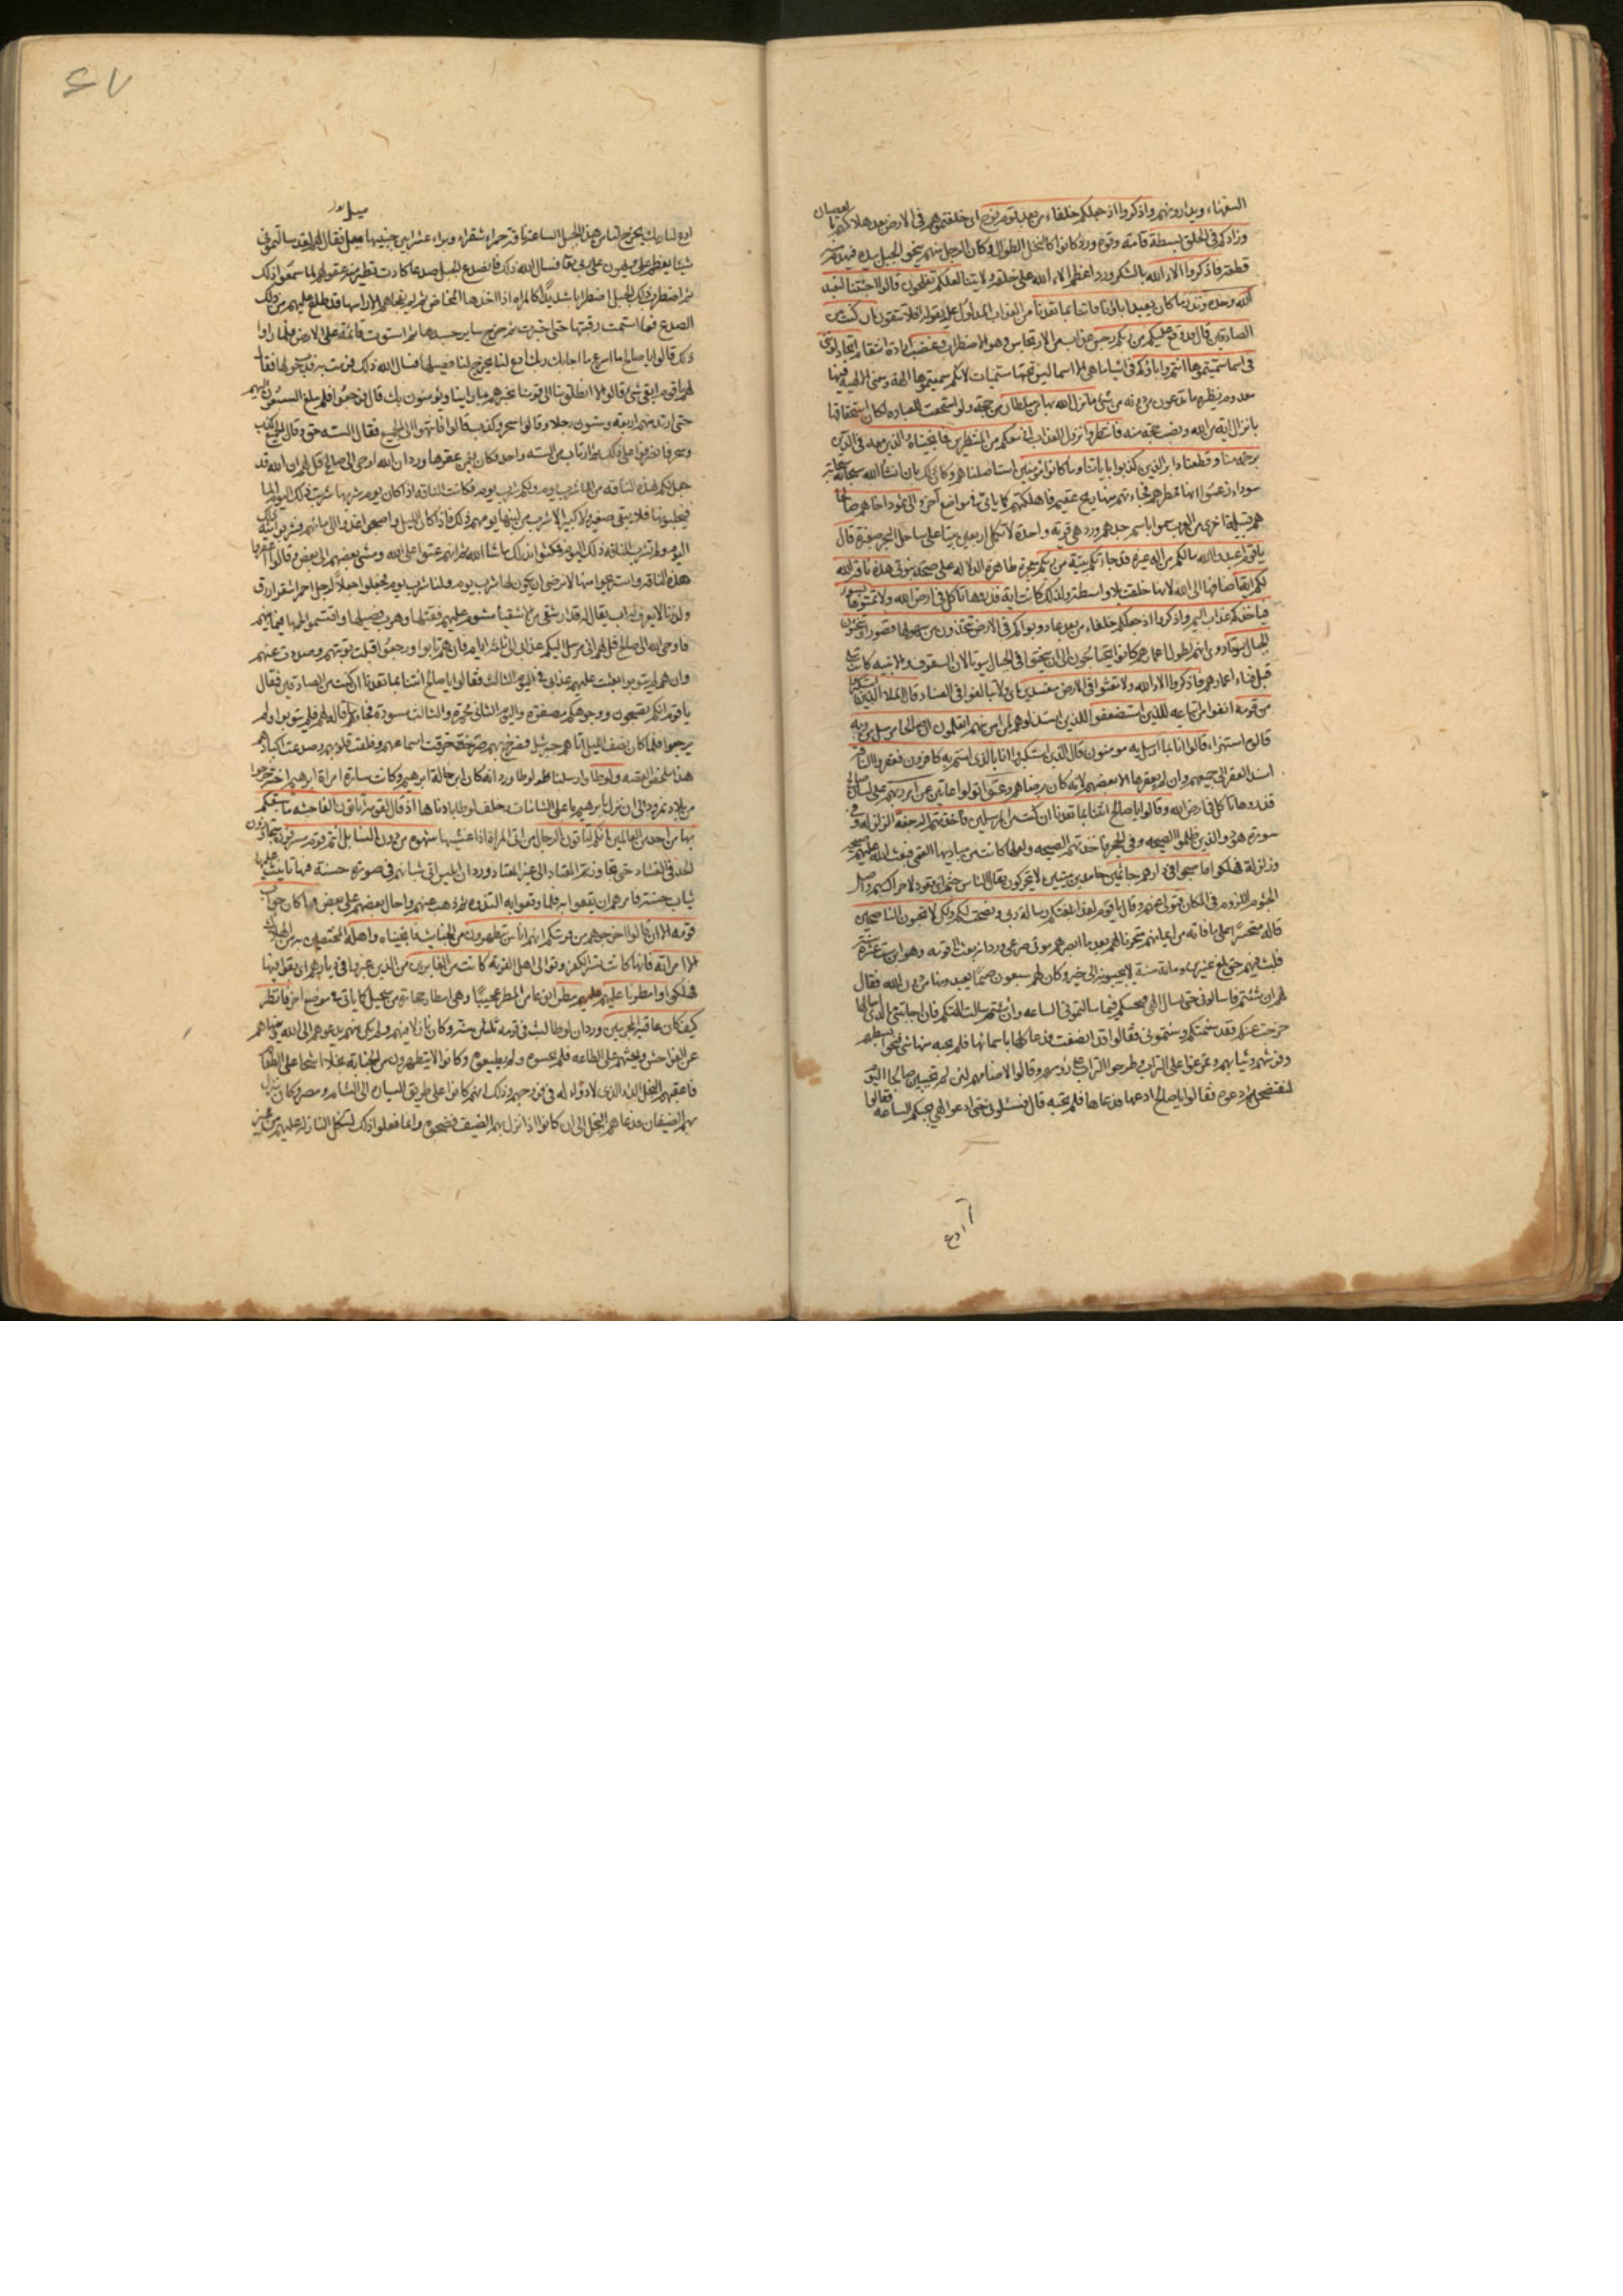 السفهاء ويدارونهم واذكروا اذ جعلكم خلفاء من بعد قوم نوح اى خلفتموهم فى الارض بعد هلاكهم بالعصيان
وزادكم فى الخلق بسطة قامة وقوة ورد كانوا كالنخل الطوال وكان الرجل منهم ينحو الجبل بيده فيهدم منه
قطعة فاذكروا الاء الله بالشكر ورد اعظم الاء الله على خلقه ولايتنا لعلكم تفلحون قالوا اجئتنا لنعبد
الله وحده ونذر ما كان يعبد اباؤنا فاتنا بما تعدنا من العذاب المدلول عليه بقوله افلا تتقون ان كنت من
الصادقين قال قد وقع عليكم من ربكم رجس عذاب من الارتجاس وهو الاضطراب وغضب ارادة انتقام اتجادلوننى
فى اسماء سميتموها انتم واباؤكم فى اشياء ما هى الا اسما ليس تحتها مسميات لانكم سميتموها الهة ومعنى الالهية فيها
معدوم نظيره ما تدعون من دونه من شئ ما نزل الله بها من سلطان من حجة ولو استحقت للعبادة لكان استحقاقها
بانزال اية من الله ونصب حجة منه فانتظروا نزول العذاب انى معكم من المنتظرين فانجيناه والذين معه فى الدين
برحمة منا وقطعنا دابر الذين كذبوا باياتنا وما كانوا مؤمنين استاصلناهم وكان ذلك بان انشأ الله سبحانه سحابة
سوداء زعموا انها تمطرهم فجاءتهم منها ريح عقيم فاهلكتهم كما ياتى فى مواضع آخر والى ثمود اخاهم صالحا
هم قبيلة اخرى من العرب سموا باسم جدهم ورد هى قرية واحدة لا تكمل اربعين بيتا على ساحل البحر صغيرة قال
يا قوم اعبدوا الله ما لكم من اله غيره قد جاءتكم بينة من ربكم معجزة ظاهرة الدلالة على صحة نبوتى هذه ناقة الله
لكم اية اضافها الى الله لانها خلقت بلا واسطة ولذلك كانت اية فذروها تاكل فى ارض الله ولا تمسوها بسوء
فياخذكم عذاب اليم واذكروا اذ جعلكم خلفاء من بعد عاد وبواكم فى الارض تتخذون من سهولها قصورا وتنحتون
الجبال بيوتا روى انهم لطول اعمارهم كانوا يحتاجون الى ان ينحتوا فى الجبال بيوتا لان السقوف والابنية كانت تبلى
قبل فناء اعمارهم فاذكروا الاء الله ولا تعثوا فى الارض مفسدين اى ولا تبالغوا فى الفساد قال الملاء الذين استكبروا
من قومه انفوا من اتباعه للذين استضعفوا للذين استذلوهم لمن امن منهم اتعلمون ان صالحا مرسل من ربه
قالوه استهزاء قالوا انا بما ارسل به مومنون قال الذين استكبروا انا بالذى امنتم به كافرون فعقروا الناقة
اسند العقر الى جميعهم وان لم يعقرها الا بعضهم لانه كان برضاهم وعتوا تولوا عاتين عن امر ربهم على لسان صالح
فذروها تاكل فى ارض الله وقالوا يا صالح ائتنا بما تعدنا ان كنت من المرسلين فاخذتهم الرجفة الزلزلة وفى
سورة هود والذين ظلموا الصيحة وفى الحجر فاخذتهم الصيحة ولعلها كانت من مباديها القمى فبعث الله عليهم صيحة
وزلزلة فهلكوا فاصبحوا فى دارهم جاثمين خامدين ميتين لا يتحركون يقال الناس جثم اى قعود لا حراك بهم واصل
الجثوم اللزوم فى المكان فتولى عنهم وقال يا قوم لقد ابلغتكم رسالة ربى ونصحت لكم ولكن لا تحبون الناصحين
قاله متحسرا على ما فاته من ايمانهم تحزنا لهم بعد ما ابصرهم موتى صرعى ورد انه بعث الى قومه وهو ابن ست عشرة سنة
فلبث فيهم حتى بلغ عشرين ومائة سنة لا يجيبونه الى خير وكان لهم سبعون صنما يعبدونها من دون الله فقال
لهم ان شئتم فاسالونى حتى اسال الهى فيجيبكم فيما سالتمونى الساعة وان شئتم سالت الهتكم فان اجابتنى بالذى اسالها
خرجت عنكم فقد سئمتكم وسئمتمونى فقالوا قد انصفت فدعا كلها باسمائها فلم يجبه منها شئ فنحوا بسطهم
وفرشهم وثيابهم وتمرغوا على التراب وطرحوا التراب على رؤسهم وقالوا لاصنامهم لئن لم تجيبين صالحا اليوم
لنفتضحن ثم دعوه فقالوا يا صالح ادعها فدعاها فلم تجبه قال فسئلونى حتى ادعو الهى يجيبكم الساعة فقالوا
ادع
ادع لنا ربك يخرج لنا من هذا الجبل الساعة ناقة حمراء شقراء وبراء عشراء بين جنبيها ميل فقال لهم لقد سالتمونى
ميل
شيئا يعظم على ويهون على ربى تعا فسال الله ذلك فانصدع الجبل صدعا كادت تطير منه عقولهم لما سمعوا ذلك
ثم اضطرب ذلك الجبل اضطرابا شديدا كالمراة اذا اخذها المخاض ثم لم يفجاهم الا راسها قد طلع عليهم من ذلك
الصدع فما استتمت رقبتها حتى اجترت ثم خرج ساير جسدها ثم استوت قائمة على الارض فلما راوا
ذلك قالوا يا صالح ما اسرع ما اجابك ربك ادع لنا يخرج لنا فصيلها فسال الله ذلك فرمت به فدب حولها فقال
لهم يا قوم ابقى شئ قالوا لا انطلق بنا الى قومنا نخبرهم بما راينا ويؤمنون بك قال فرجعوا فلم يبلغ السبعون اليهم
حتى ارتد منهم اربعة وستون رجلا وقالوا سحر وكذب قالوا فانتهوا الى الجميع فقال الستة حق وقال الجميع كذب
وسحر فانصرفوا على ذلك ثم ارتاب من الستة واحد فكان فيمن عقرها ورد ان الله اوحى الى صالح قل لهم ان الله قد
جعل لكم لهذه الناقة من الماء شرب يوم ولكم شرب يوم فكانت الناقة اذا كان يوم شربها شربت ذلك اليوم الماء
فيحلبونها فلا يبقى صغير ولا كبير الا شرب من لبنها يومهم ذلك فاذا كان الليل واصبحوا غدوا الى مائهم فشربوا منه ذلك
اليوم ولم تشرب الناقة ذلك اليوم فمكثوا بذلك ما شاء الله ثم انهم عتوا على الله ومشى بعضهم الى بعض وقالوا اعقروا
هذه الناقة واستريحوا منها لا نرضى ان يكون لها شرب يوم ولنا شرب يوم فجعلوا جعلا لرجل احمر اشقر ازرق
ولد زنا لا يعرف له اب يقال له قدار شقى من الاشقياء مشوم عليهم فقتلها وهرب فصيلها واقتسموا لحمها فيما بينهم
فاوحى الله الى صالح قل لهم انى مرسل اليكم عذابى الى ثلثة ايام فان هم تابوا ورجعوا قبلت توبتهم وصددت عنهم
وان هم لم يتوبوا بعثت عليهم عذابى فى اليوم الثالث فقالوا يا صالح ائتنا بما تعدنا ان كنت من الصادقين فقال
يا قوم انكم تصبحون ووجوهكم مصفرة واليوم الثانى محمرة والثالث مسودة فجاءهم ما قاله لهم فلم يتوبوا ولم
يرجعوا فلما كان نصف الليل اتاهم جبرئيل فصرخ بهم صرخة خرقت اسماعهم وفلقت قلوبهم وصدعت اكبادهم
هذا ملخص القصة ولوطا وارسلنا لوطا ورد انه كان ابن خالة ابرهيم وكانت سارة امراة ابرهيم اخته خرجوا
من بلاد نمرود الى ان نزل ابرهيم باعلى الشامات وخلف لوطا بادناها اذ قال لقومه اتاتون الفاحشة ما سبقكم
بها من احد من العالمين ائنكم لتاتون الرجال من اتى المراة اذا غشيها شهوة من دون النساء بل انتم قوم مسرفون متجاوزون
الحد فى الفساد حتى تجاوزتم المعتاد الى غير المعتاد ورد ان ابليس اتى شبانهم فى صورة حسنة فيها تانيث عليه
ثياب حسنة فامرهم ان يقعوا به فلما وقعوا به التذوه ثم ذهب عنهم واحال بعضهم على بعض وما كان جواب
قومه الا ان قالوا اخرجوهم من قريتكم انهم اناس يتطهرون من الخبائث فانجيناه واهله المختصين به من الهلاك
الا امراته فانها كانت تسر الكفر وتوالى اهل القرية كانت من الغابرين من الذين غبروا فى ديارهم اى بقوا فيها
فهلكوا وامطرنا عليهم مطرا اى نوعا من المطر عجيبا وهى امطار حجارة من سجيل كما ياتى فى موضع اخر فانظر
كيف كان عاقبة المجرمين ورد ان لوطا لبث فى قومه ثلثين سنة وكان نازلا فيهم ولم يكن منهم يدعوهم الى الله وينهاهم
عن الفواحش ويحثهم على الطاعة فلم يجيبوه ولم يطيعوه وكانوا لا يتطهرون من الجنابة بخلاء اشحاء على الطعام
فاعقبهم البخل الداء الذى لا دواء له فى فروجهم وذلك انهم كانوا على طريق السيارة الى الشام ومصر وكان ينزل
بهم الضيفان فدعاهم البخل الى ان كانوا اذا نزل بهم الضيف فضحوه وانما فعلوا ذلك لتنكل النازلة عليهم من غير